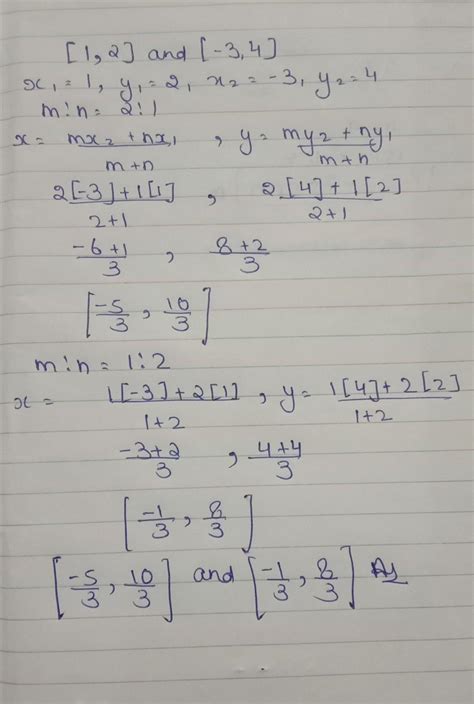 [1, 2] and [-3, 4]
x₁ = 1, y₁ = 2, x₂ = -3, y₂ = 4
m:n = 2:1
x = (mx₂ + nx₁)/(m+n) , y = (my₂ + ny₁)/(m+n)
(2[-3]+1[1])/(2+1) , (2[4]+1[2])/(2+1)
(-6+1)/3 , (8+2)/3
[-5/3 , 10/3]
m:n = 1:2
x = (1[-3]+2[1])/(1+2) , y = (1[4]+2[2])/(1+2)
(-3+2)/3 , (4+4)/3
[-1/3 , 8/3]
[-5/3 , 10/3] and [-1/3 , 8/3]